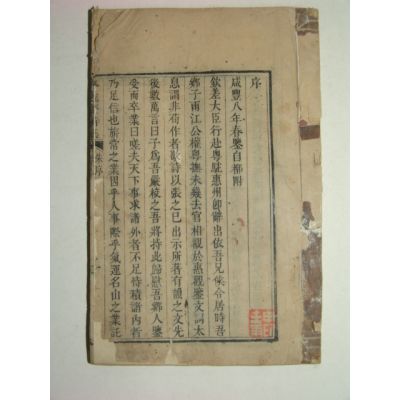 序
咸豐八年春鑒自都附
欽差大臣行赴粵駐惠州卽辭出依吾兄保合居時吾
鄉子甫江公權粵撫未幾去官相親於惠觀鑒文詞太
息謂非荀作者歟詩以張之已出示所著有韻之文先
後數萬言曰子爲吾嚴核之吾將持此歸慰吾鄉人鑒
受而卒業曰嗟夫天下事求諸外者不足恃積諸內者
乃足信也旂常之業因乎人事際乎氣運名山之業託
朱序